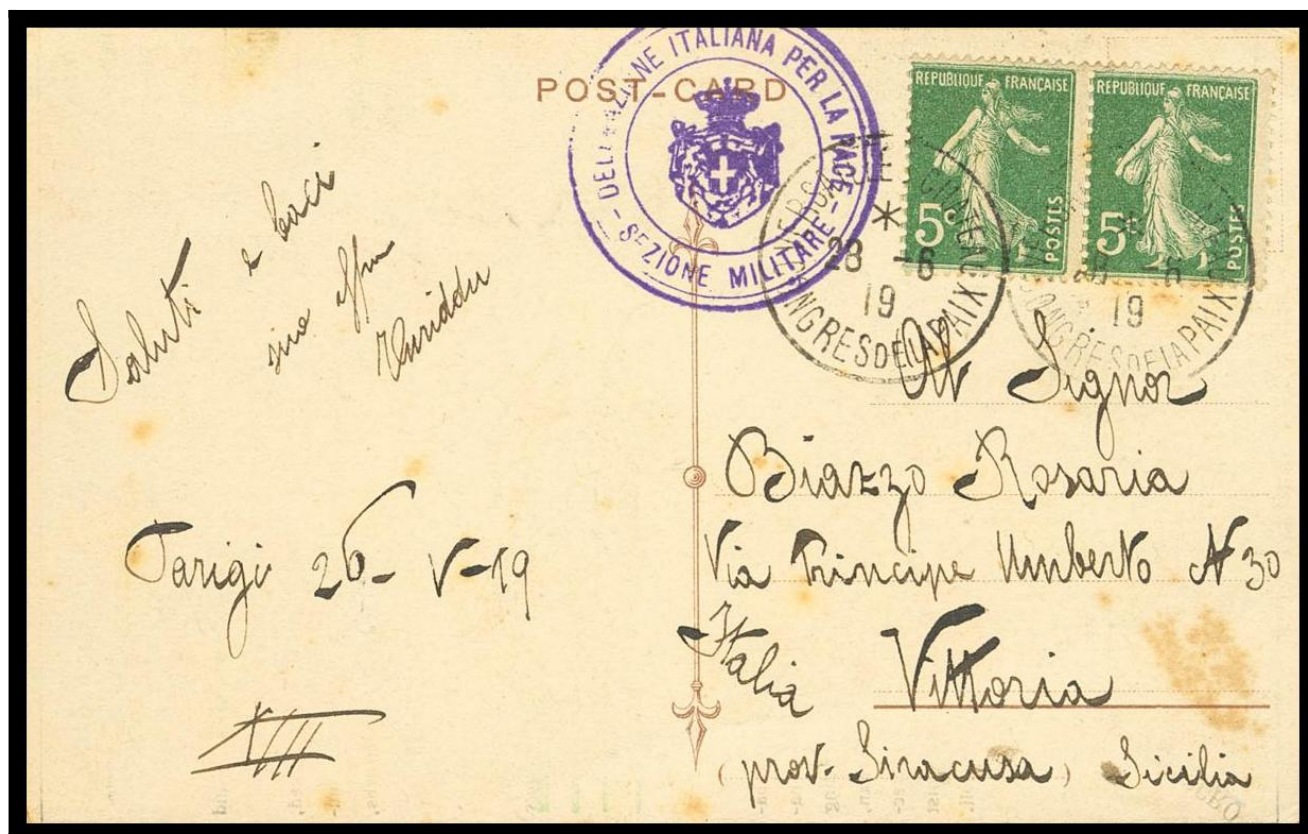 POST-CARD
DELEGAZIONE ITALIANA PER LA PACE
- SEZIONE MILITARE -
REPUBLIQUE FRANÇAISE
5c
POSTES
REPUBLIQUE FRANÇAISE
5c
POSTES
*
28 -6
19
CONGRES DE LA PAIX
-6
19
CONGRES DE LA PAIX
Saluti e baci
Turiddu
Parigi 26- V-19
VIII
Al Signor
Biazzo Rosaria
Via Principe Umberto N 30
Italia Vittoria
(prov. Siracusa) Sicilia